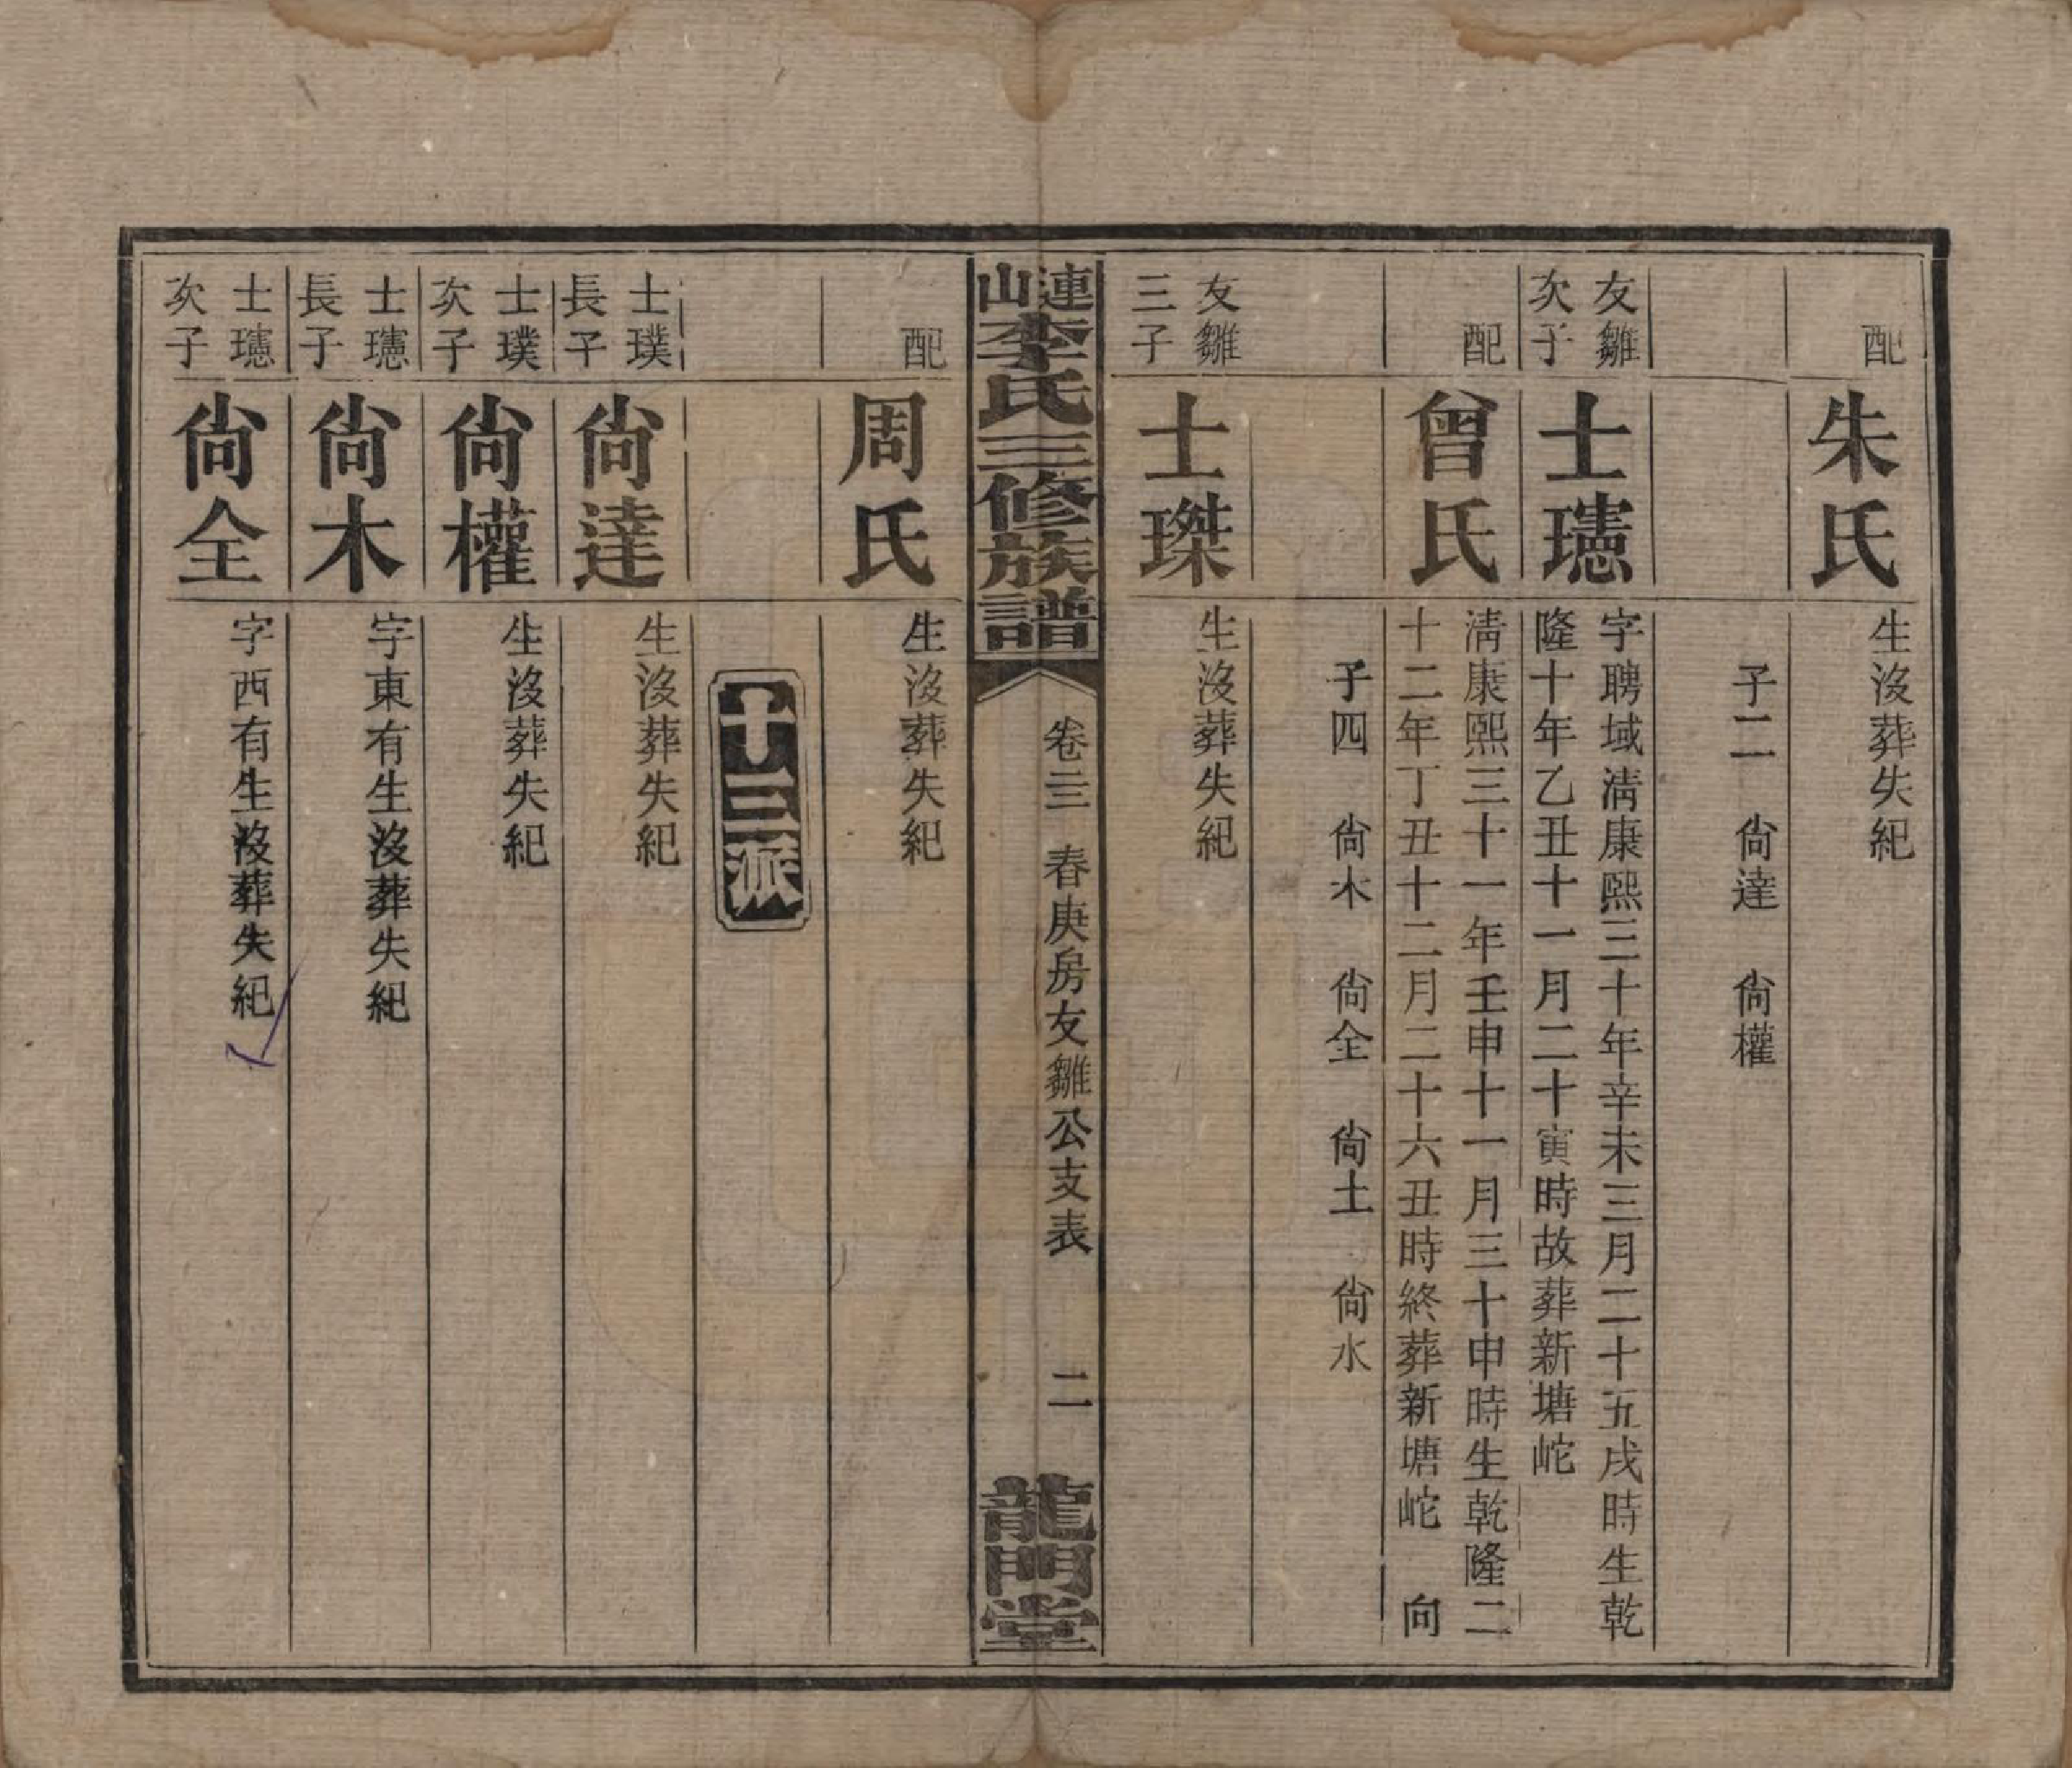 配
朱氏
生沒葬失紀
子二　尙達　尙權
友雛
次子
士璁
字聘域淸康熙三十年辛未三月二十五戌時生乾
隆十年乙丑十一月二十寅時故葬新塘岮
配
曾氏
淸康熙三十一年壬申十一月三十申時生乾隆二
十二年丁丑十二月二十六丑時終葬新塘岮　向
子四　尙木　尙全　尙土　尙水
友雛
三子
士琹
生沒葬失紀
連山李氏三修族譜
卷三　春庚房友雛公支表　二
龍門堂
配
周氏
生沒葬失紀
十三派
士璞
長子
尙達
生沒葬失紀
士璞
次子
尙權
生沒葬失紀
士璁
長子
尙木
字東有生沒葬失紀
士璁
次子
尙全
字西有生沒葬失紀